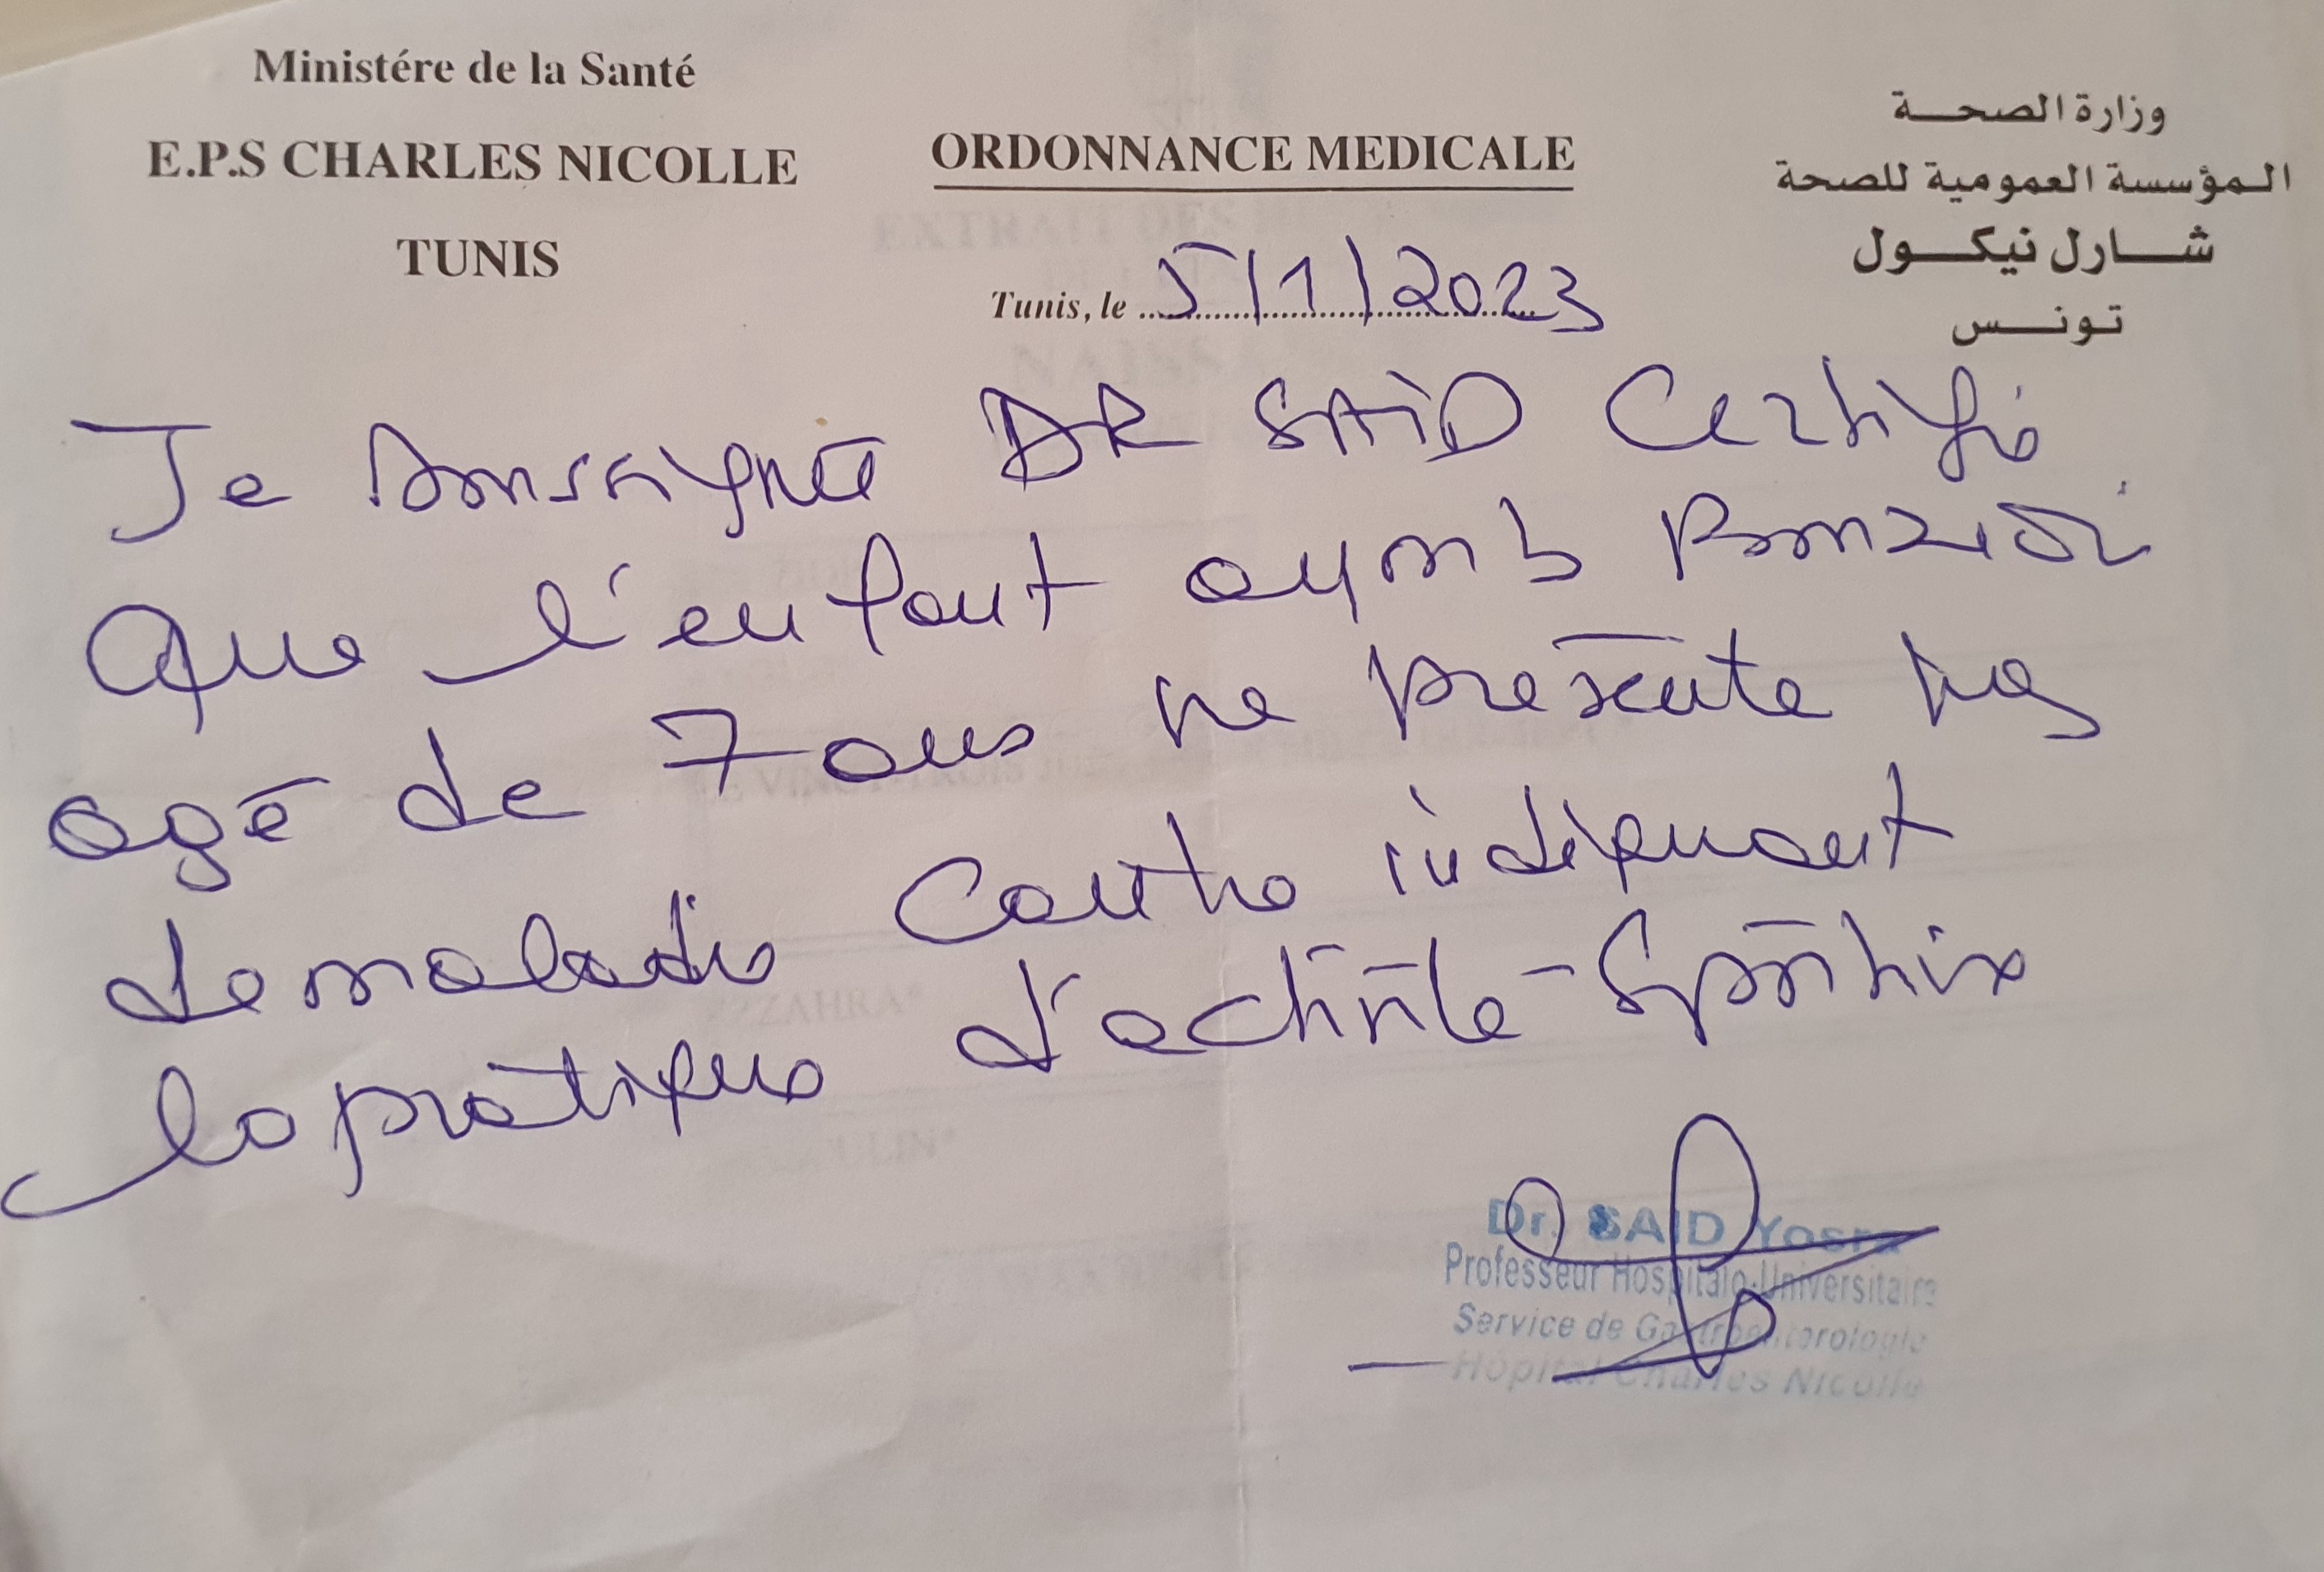 Ministére de la Santé
E.P.S CHARLES NICOLLE
TUNIS
ORDONNANCE MEDICALE
Tunis, le 5/1/2023
وزارة الصحة
المؤسسة العمومية للصحة
شارل نيكول
تونس
Je soussignée DR SAID Certifie
Que l'enfant
agé de 7 ans ne présente pas
de maladie contre indiquant
la pratique d'activité Sportive
Dr. SAID Yosra
Professeur Hospitalo-Universitaire
Service de Gastroenterologie
Hôpital Charles Nicolle